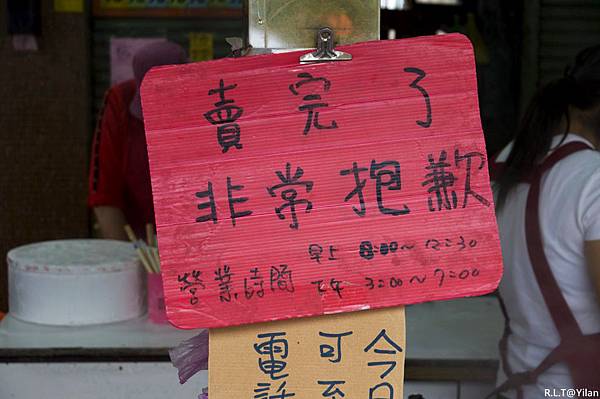 賣完了
非常抱歉
營業時間
早上 8:00~12:30
下午 3:00~7:00
今日
可至
電話
R.L.T@Yilan